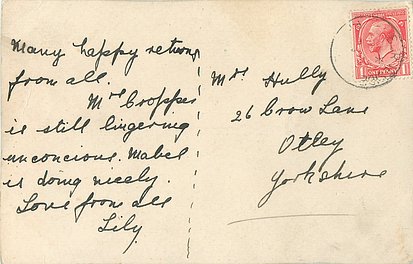 Many happy returns
from all.
Mrs Cropper
is still lingering
unconcious. Mabel
is doing nicely.
Love from all
Lily
Mrs Hully
26 Crow Lane
Otley
Yorkshire
1 ONE PENNY 1